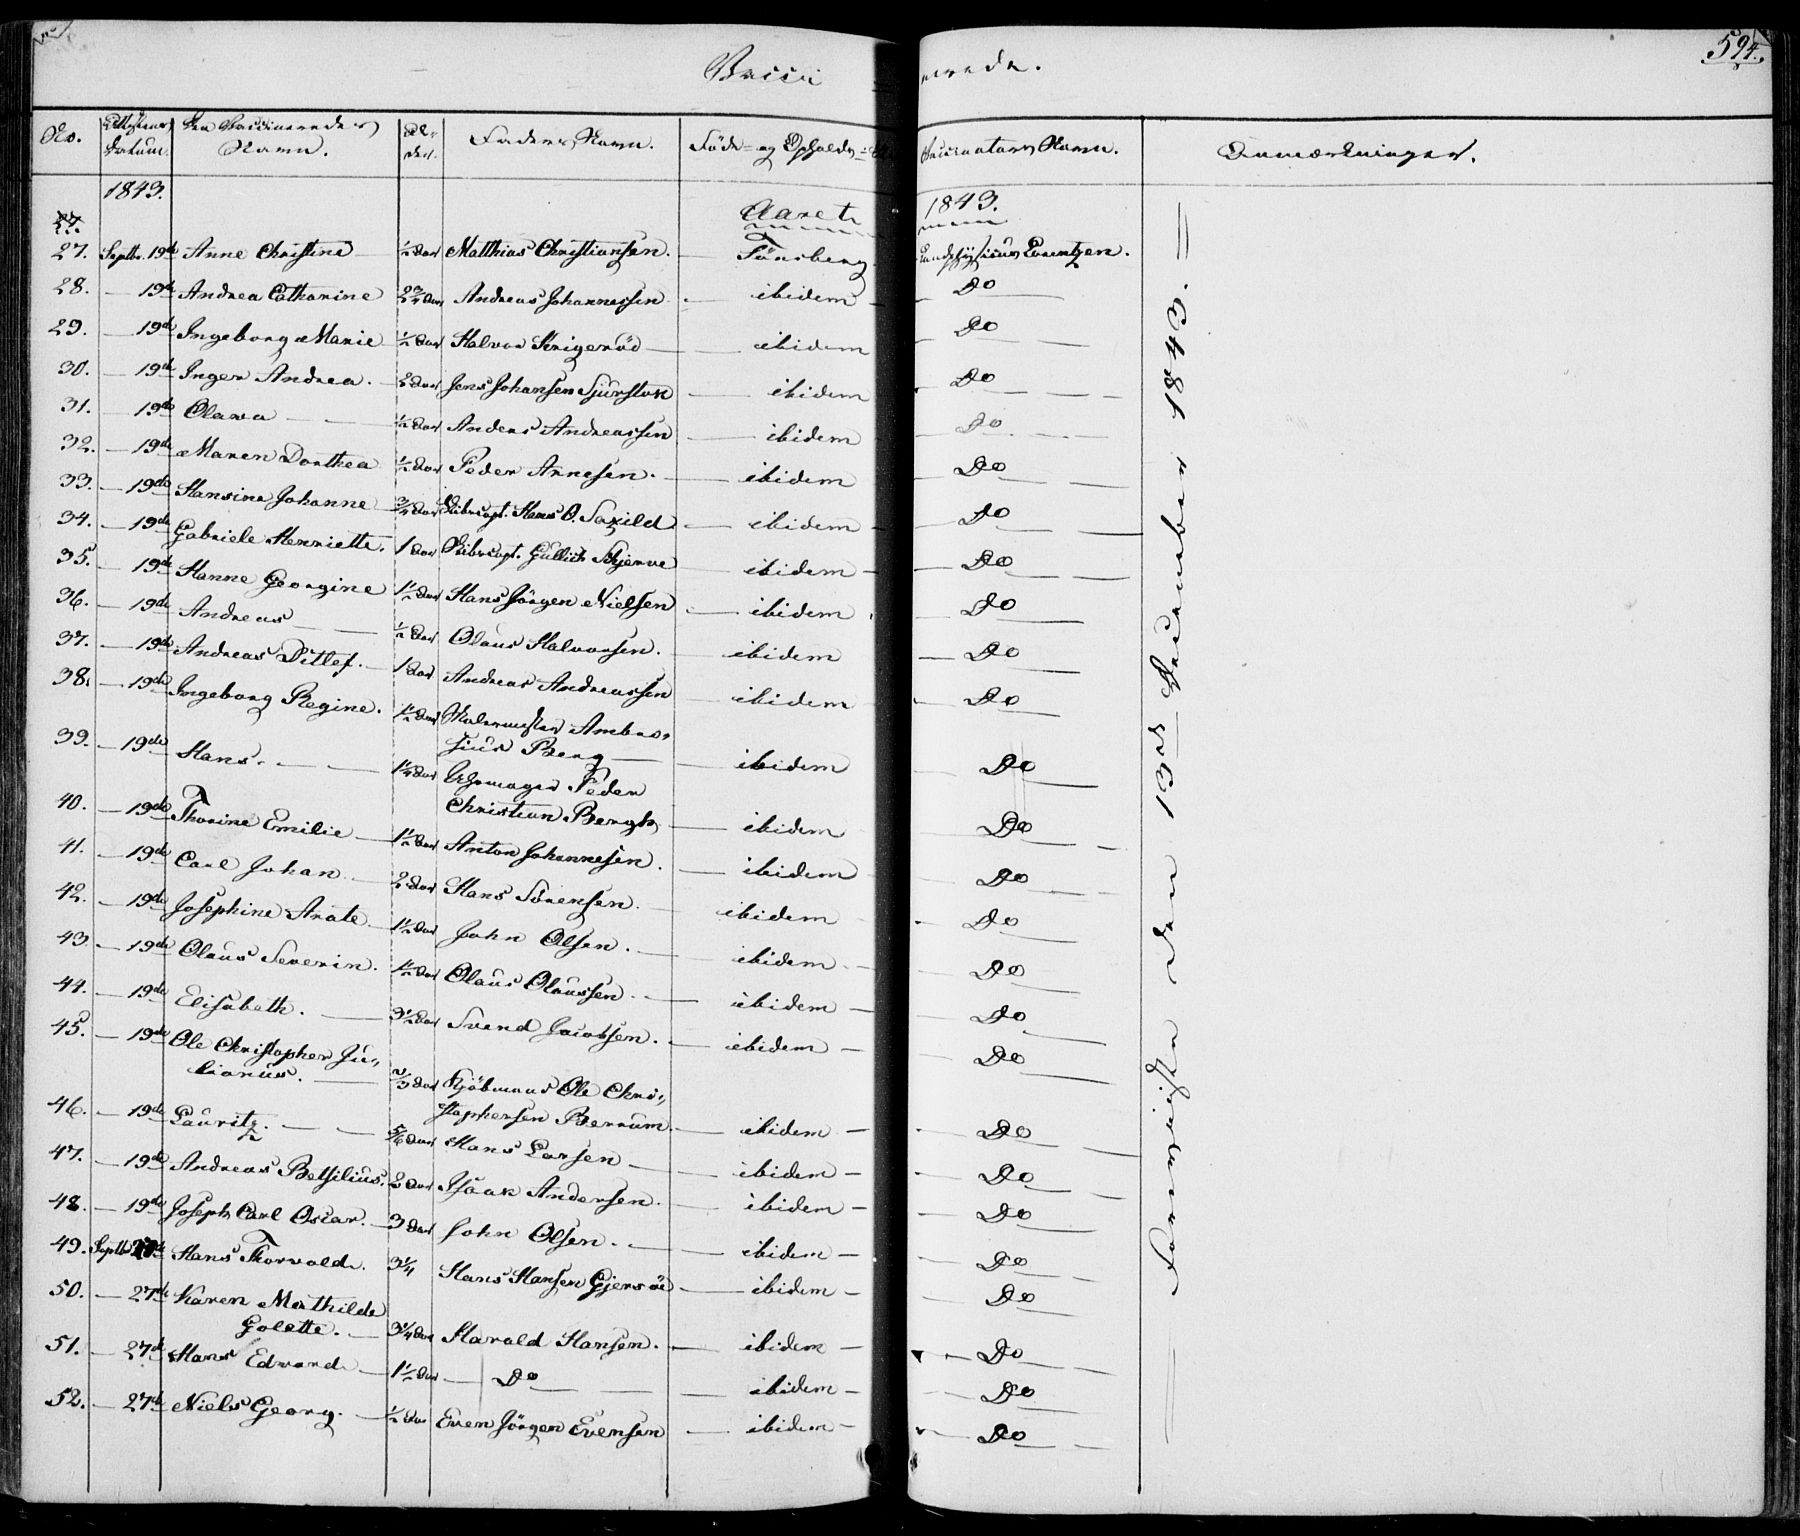 Vacci nerede. 594.
No. Attestens Datum. De Vaccineredes Navn. Al- der. Faders Navn. Föde- og Opholds- Vaccinateurs Navn. Anmærkninger.
1843. Aaret 1843.
27.
27. Septbr. 19de Anne Christine ½ Aar Matthias Christiansen. Tönsberg Landphysicus Lorentzen.
28. — 19de Andrea Catharine 2¾ Aar Andreas Johannessen — ibidem — Do
29. — 19de Ingeborg Marie ½ Aar Halvor Krigeröd — ibidem Do
30. — 19de Inger Andrea. 2 Aar Jens Johansen Sjurstok — ibidem — Do
31. — 19de Olava ½ Aar Anders Andreassen — ibidem — Do
32. — 19de Maren Dorthea ½ Aar Peder Arnesen. — ibidem — Do
33. — 19de Hansine Johanne ¾ Aar Skibscapt. Hans O. Saxild — ibidem — Do
34. — 19de Gabriele Henriette. 1 Aar Skibscapt. Gullich Skjerve — ibidem — Do
35. — 19de Hanne Georgine 1½ Aar Hans Jörgen Nielsen — ibidem Do
36. — 19de Andreas ½ Aar Olaus Halvorsen. — ibidem — Do
37. — 19de Andreas Ditlef. 1 Aar Andreas Andreassen — ibidem — Do
38. — 19de Ingeborg Regine. 1½ Aar Malermester Ambro-
sius Berg — ibidem — Do
39. — 19de Hans. 1¼ Aar Uhrmager Peder
Christian Bergh — ibidem — Do
40. — 19de Thorine Emilie 1½ Aar Anton Johannesen. — ibidem — Do
41. — 19de Carl Johan 2 Aar Hans Sörensen. — ibidem — Do
42. — 19de Josephine Anate 1½ Aar John Olsen. — ibidem — Do
43. — 19de Olaus Severin. 1½ Aar Olaus Olaussen. — ibidem — Do
44. — 19de Elisabeth. 3½ Aar Svend Jacobsen. — ibidem — Do
45. — 19de Ole Christopher Ju-
lianus. ⅔ Aar Kjöbmand Ole Chri-
stophersen Berrum. — ibidem — Do
46. — 19de Lauritz. 5/6 Aar Hans Larsen — ibidem — Do
47. — 19de Andreas Betsilius. 2 Aar Isaak Andersen. — ibidem — Do
48. — 19de Joseph Carl Oscar. 3 Aar John Olsen. — ibidem — Do
49. Septbr. 27de Hans Thorvald. 3¼ Hans Hansen Gjersöe — ibidem — Do
50. — 27de Karen Mathilde
Golette. 3¼ Aar Harald Hansen. — ibidem — Do
51. — 27de Hans Edvard 1½ Aar — Do — ibidem — Do
52. — 27de Niels Georg. ½ Aar Even Jörgen Evensen — ibidem — Do
den 13de December 1843.